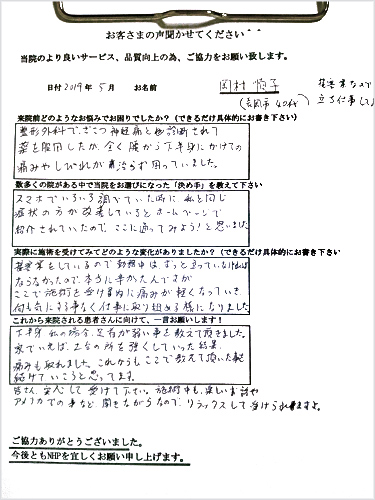 お客さまの声聞かせてください^ ^
当院のより良いサービス、品質向上の為、ご協力をお願い致します。
日付 2019年 5月 お名前 岡村 順子 接客業なので
40代 立ち仕事して
来院前どのようなお悩みでお困りでしたか?(できるだけ具体的にお書き下さい)
整形外科で、ざこつ神経痛と診断されて
薬を服用したが、全く腰から下半身にかけての
痛みやしびれが治らず困っていました。
数多くの院がある中で当院をお選びになった「決め手」を教えて下さい
スマホでいろいろ調べていた時に、私と同じ
症状の方が改善しているとホームページで
紹介されていたので、ここに通ってみよう!と思いました
実際に施術を受けてみてどのような変化がありましたか?(できるだけ具体的にお書き下さい)
接客業をしているので勤務中は、ずっと立っていなければ
ならなかったので、本当に辛かったんですが
ここで施術を受け、痛みが軽くなっていき
何も気にする事なく仕事に取り組める様になりました
これから来院される患者さんに向けて、一言お願いします!
下半身、私の場合、左足が弱い事を教えて頂きました。
家でいえば、土台の所を強くしていった結果、
痛みも取れました。これからもここで教えて頂いた事を
続けていこうと思ってます。
皆さん、安心して受けて下さい。施術中も、楽しいお話や
アメリカでの事など聞きながらなので、リラックスして受けられますよ。
ご協力ありがとうございました。
今後ともNHPを宜しくお願い申し上げます。